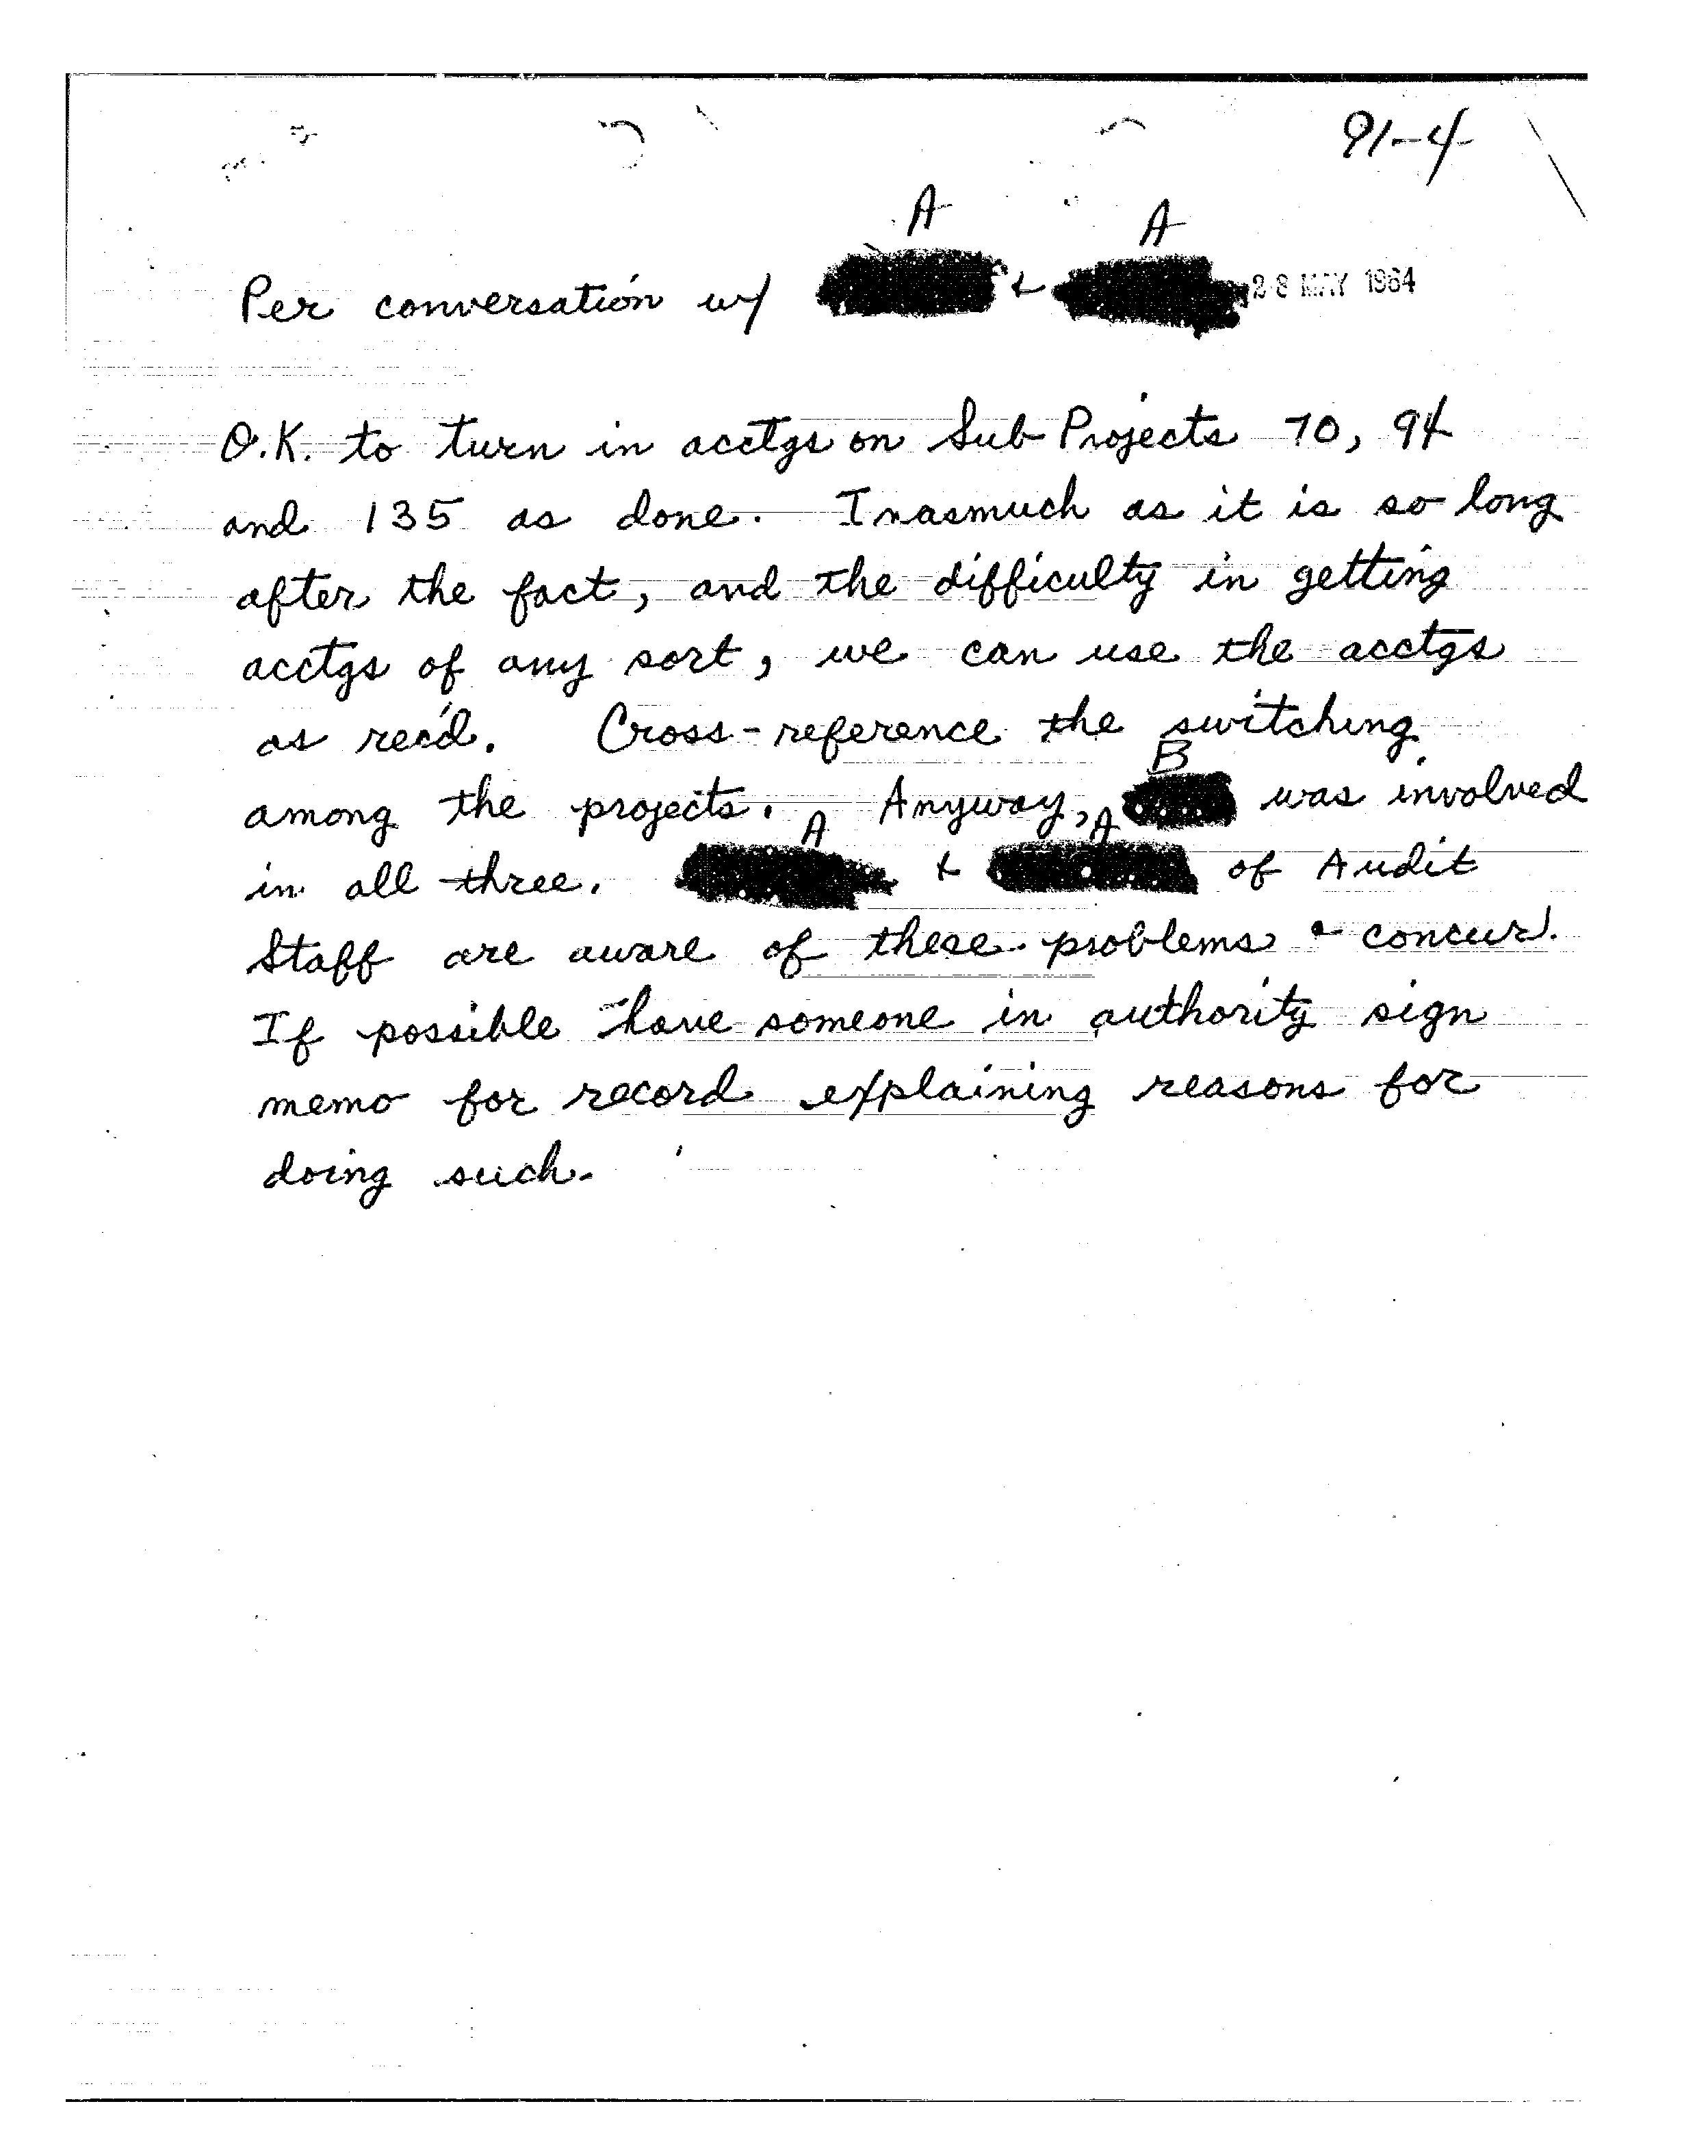 91-4
A A
Per conversation w/ & 28 MAY 1964
O.K. to turn in acctgs on Sub Projects 70, 94
and 135 as done. Inasmuch as it is so long
after the fact, and the difficulty in getting
acctgs of any sort, we can use the acctgs
as rec'd. Cross-reference the switching
B
among the projects. Anyway, was involved
A A
in all three. & of Audit
Staff are aware of these problems & concur.
If possible have someone in authority sign
memo for record explaining reasons for
doing such.